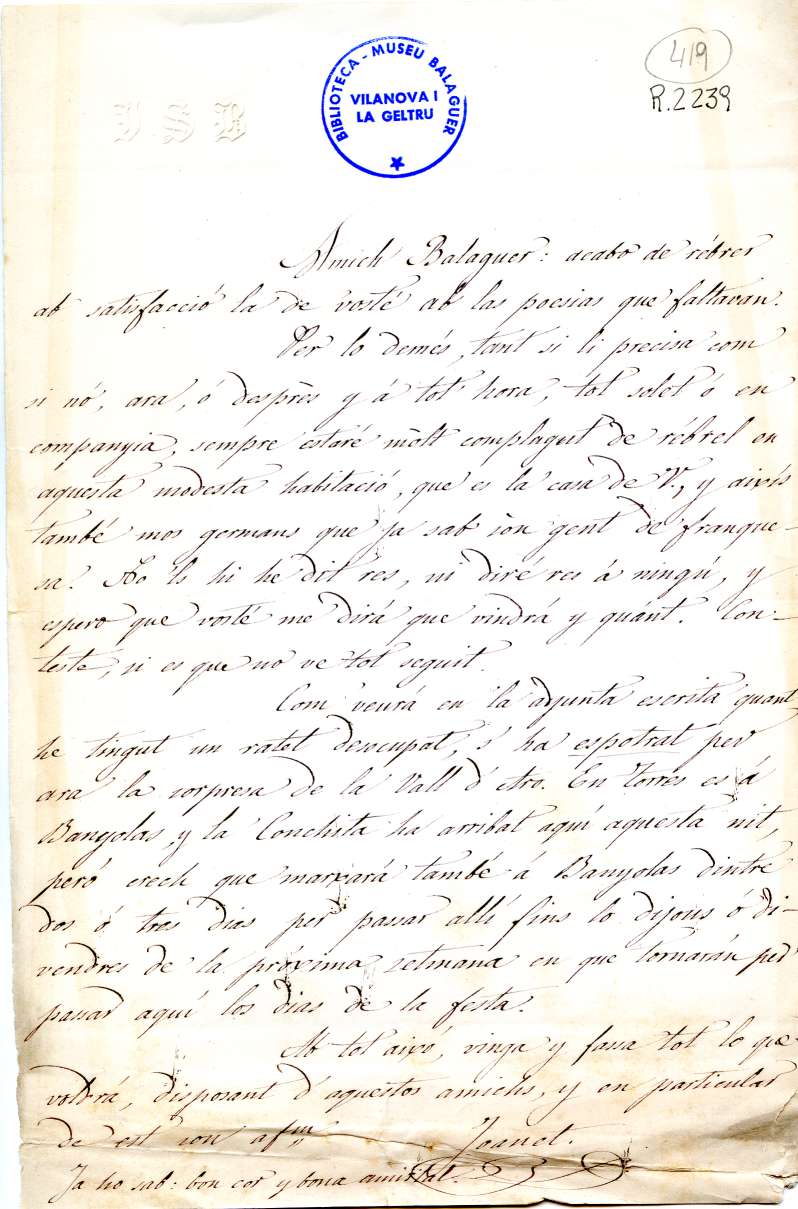 419
R.2239
BIBLIOTECA - MUSEU BALAGUER
VILANOVA I
LA GELTRU
Amich Balaguer: acabo de rébrer
ab satisfacció la de vosté ab las poesias que faltavan.
Per lo demés, tant si li precisa com
si nó, ara, ó desprès y á tot hora, tol solet ó en
companyia, sempre estaré mòlt complagut de rébrel en
aquesta modesta habitació, que es la casa de V., y aixís
també mos germans que ja sab són gent de franque-
sa. No 'ls hi he dit res, ni diré res á ningú, y
espero que vosté me dirá que vindrá y quánt. Con-
teste, si es que no ve tot seguit.
Com veurá en la adjunta escrita quant
he tingut un ratet desocupat, s' ha espotrat per
ara la sorpresa de la Vall d' Aro. En Torres es á
Banyolas, y la Conchita ha arribat aquí aquesta nit,
peró crech que marxará també á Banyolas dintre
dos ó tres dias per passar allí fins lo dijous ó di-
vendres de la próxima setmana en que tornarán per
passar aquí los dias de la festa.
Ab tot aixó, vinga y fassa tot lo que
voldrá, disposant d' aquestos amichs, y en particular
de est son afm.
Joanet.
Ja ho sab: bon cor y bona amistat.